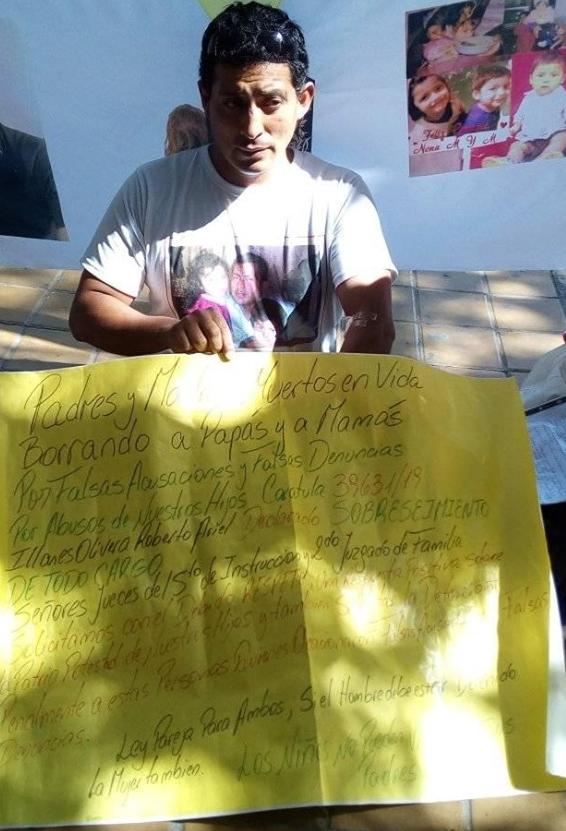 Feliz
Nena M Y M
Padres y Muertos en Vida
Borrando a Papás y a Mamás
Por Falsas Acusaciones y Falsas Denuncias
Por Abusos de Nuestros Hijos Caratula 39631/19
Illanes Olivera Roberto Ariel Declarado SOBRESEIMIENTO
DE TODO CARGO
Señores Jueces del 5to de Instruccion y 2do Juzgado de Familia
Solicitamos con el Respuesta Positiva sobre
la Patria Potestad de Nuestros Hijos y tambien
Penalmente a estas Personas Falsas
Denuncias.
Ley Pareja Para Ambos, Si el Hombre debe estar
La Mujer tambien. Los Niños No Pueden
Padres